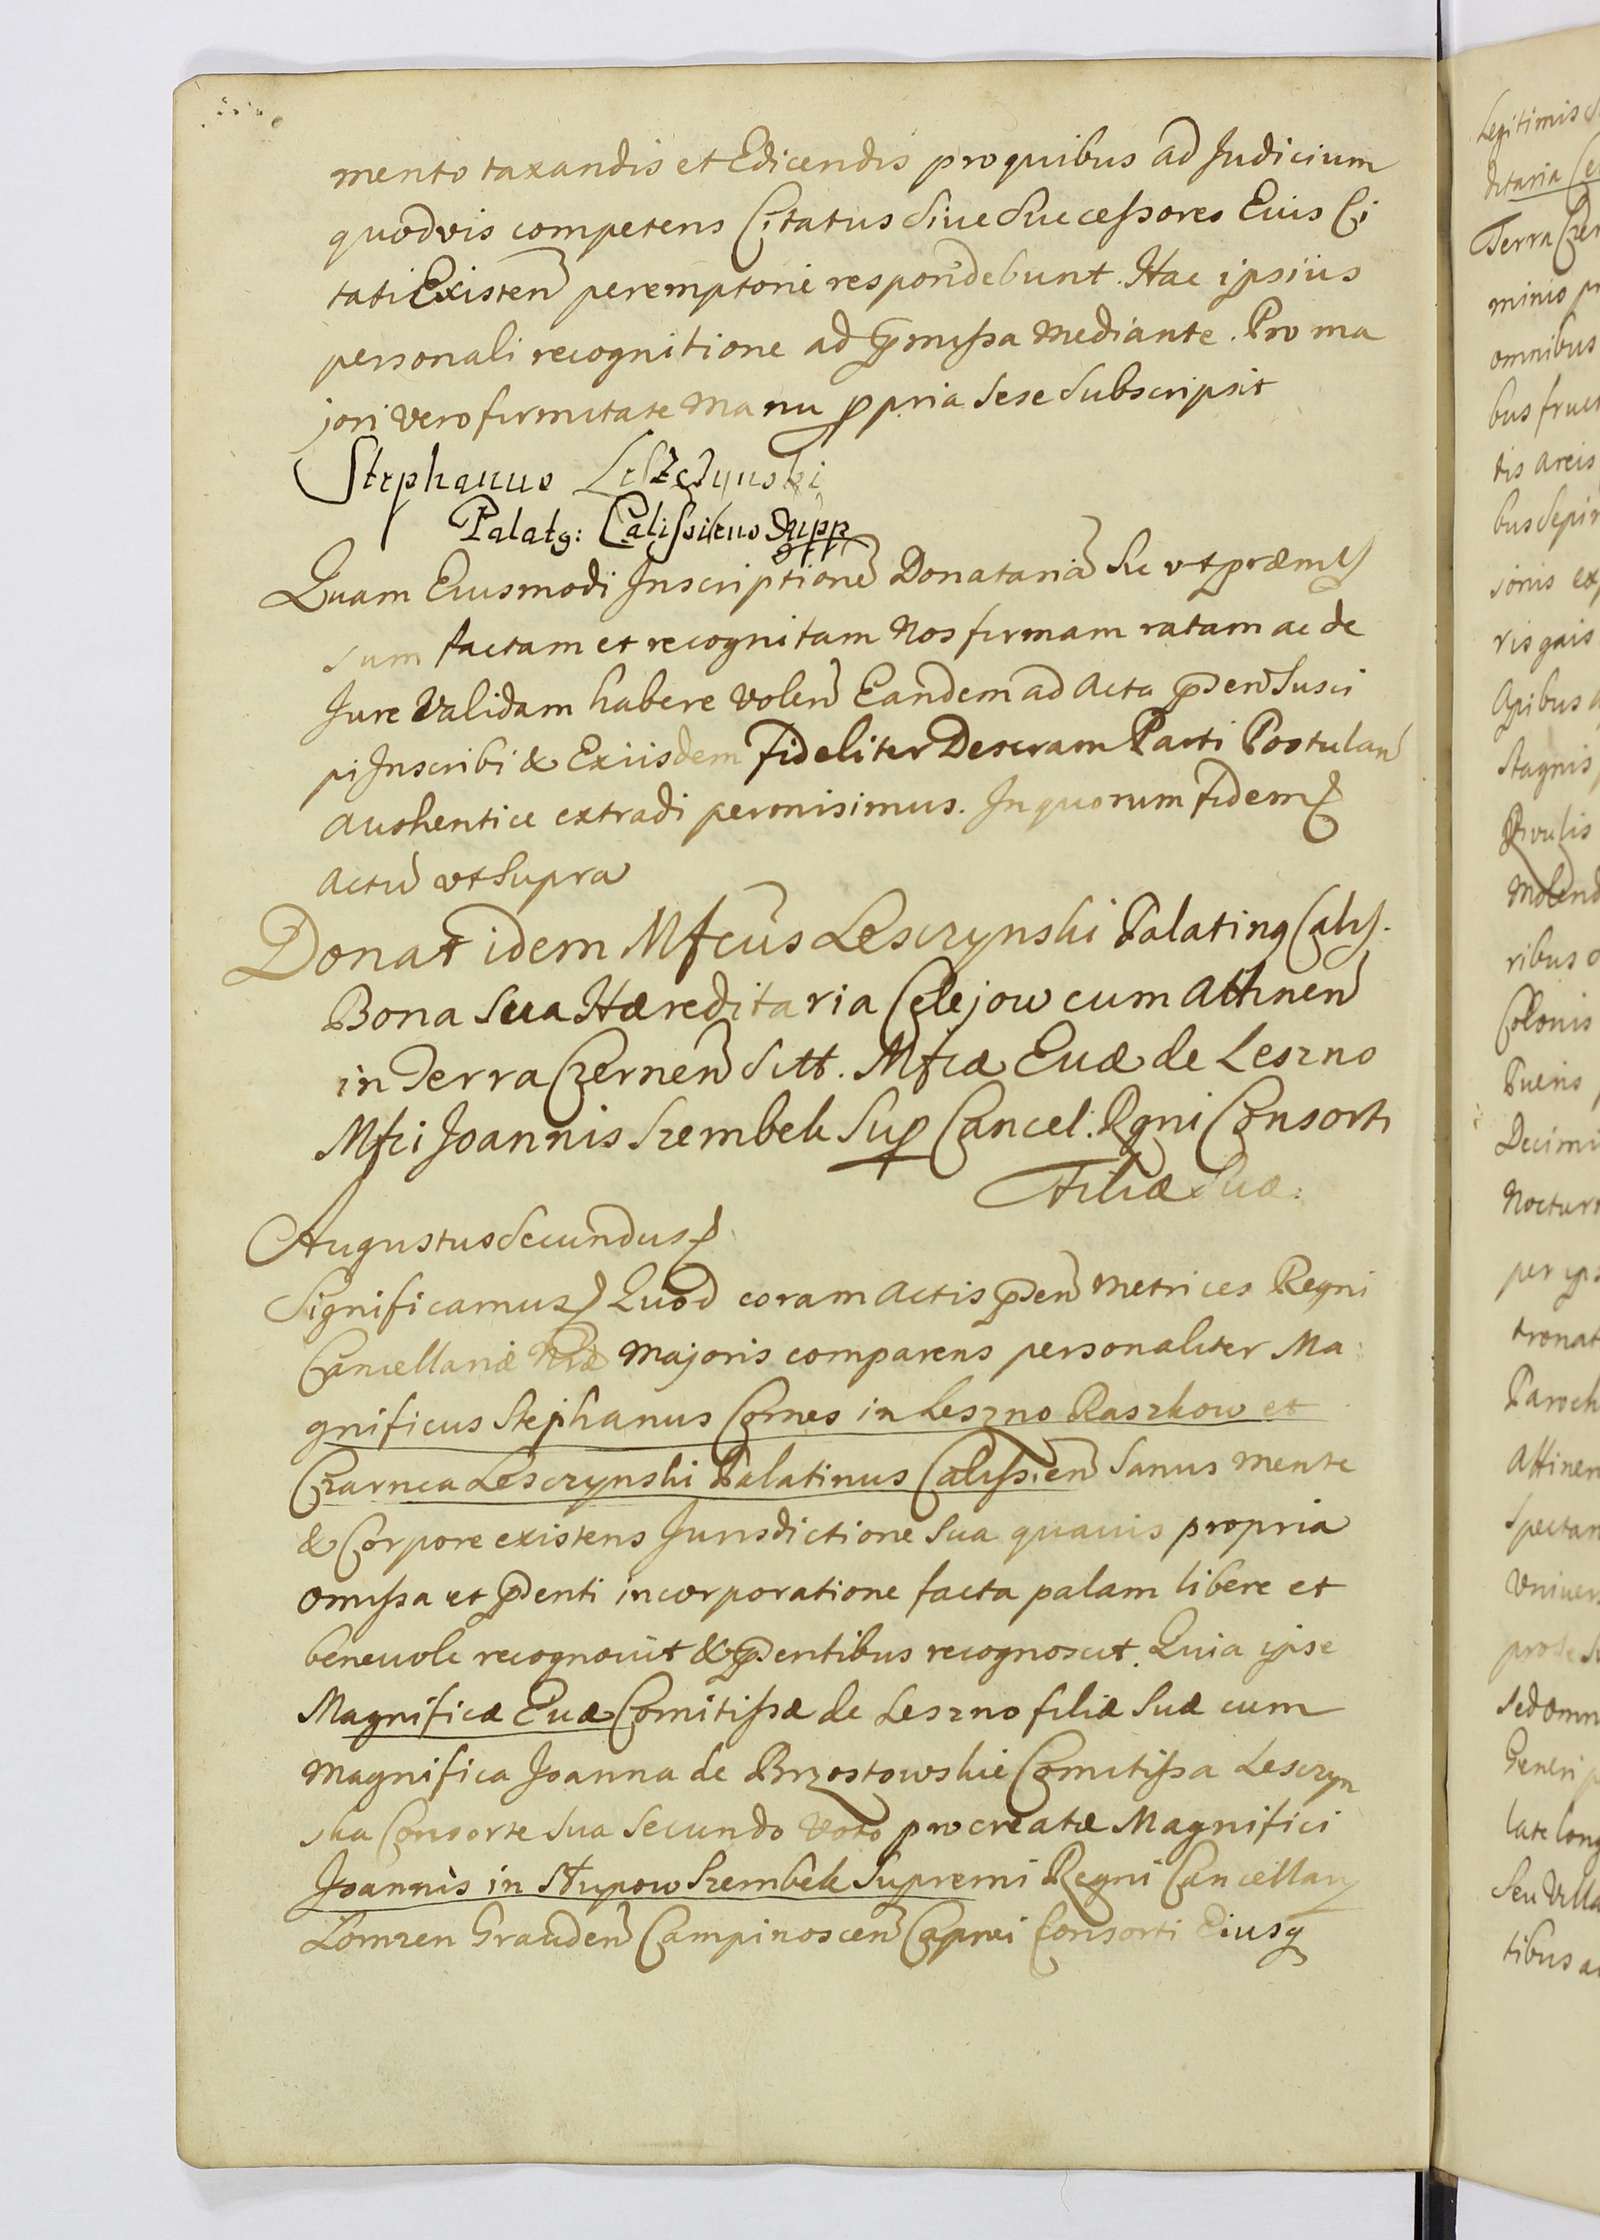 mento taxandis et Edicendis pro quibus ad Judicium
quodvis competens Citatus siue Successores Eius Ci
tati Existen peremptorie respondebunt. Hac ipsius
personali recognitione ad pmissa mediante. Pro ma
jori vero firmitate manu ppria sese subscripsit
Stephanus Leszczynski
Palatg: Calissiens mpp
Quam Eiusmodi Inscriptione Donataria sic vt præmis
sum factam et recognitam Nos firmam ratam ac de
Jure Validam habere volen Eandem ad Acta pden Susci
pi Inscribi & Exiisdem fideliter Descram Parti Postulan
authentice extradi permisimus. In quorum fidem
Actu vt supra
Donat idem Mfcus Lesczynski Palating Calis.
Bona sua Hæreditaria Celejow cum Attinen
in Terra Czernen sitt. Mfcæ Euæ de Leszno
Mfci Joannis Szembek Sup Cancel: Rgni Consorti
Filiæ suæ:
Augustus Secundus
Significamus Quod coram Actis pden Metrices Regni
Cancellariæ Nræ Majoris comparens personaliter Ma
gnificus Stephanus Comes in Leszno Raszkow et
Czarnca Lesczynski Palatinus Calissien Sanus mente
& Corpore existens Jurisdictione sua quauis propria
omissa et pdenti incorporatione facta palam libere et
beneuole recognouit & pdentibus recognoscit. Quia ipse
Magnificæ Euæ Comitissæ de Leszno filiæ suæ cum
Magnifica Joanna de Brzostowskie Comitissa Lesczyn
ska Consorte sua secundo voto procreatæ Magnifici
Joannis in Słupow Szembek Supremi Regni Cancellarij
Lomzen Grauden Campinoscen Capnei Consorti Eiusq
Legitimis
ditaria
Terra Czer
minio
omnibus
bus fruct
tis areis
sionis
ris gais
Stagnis
ribus
Colonis
Decimi
Noctur
Paroch
Attinen
Spectan
Vniuer
sed omn
Generi
late long
seu Villa
tibus